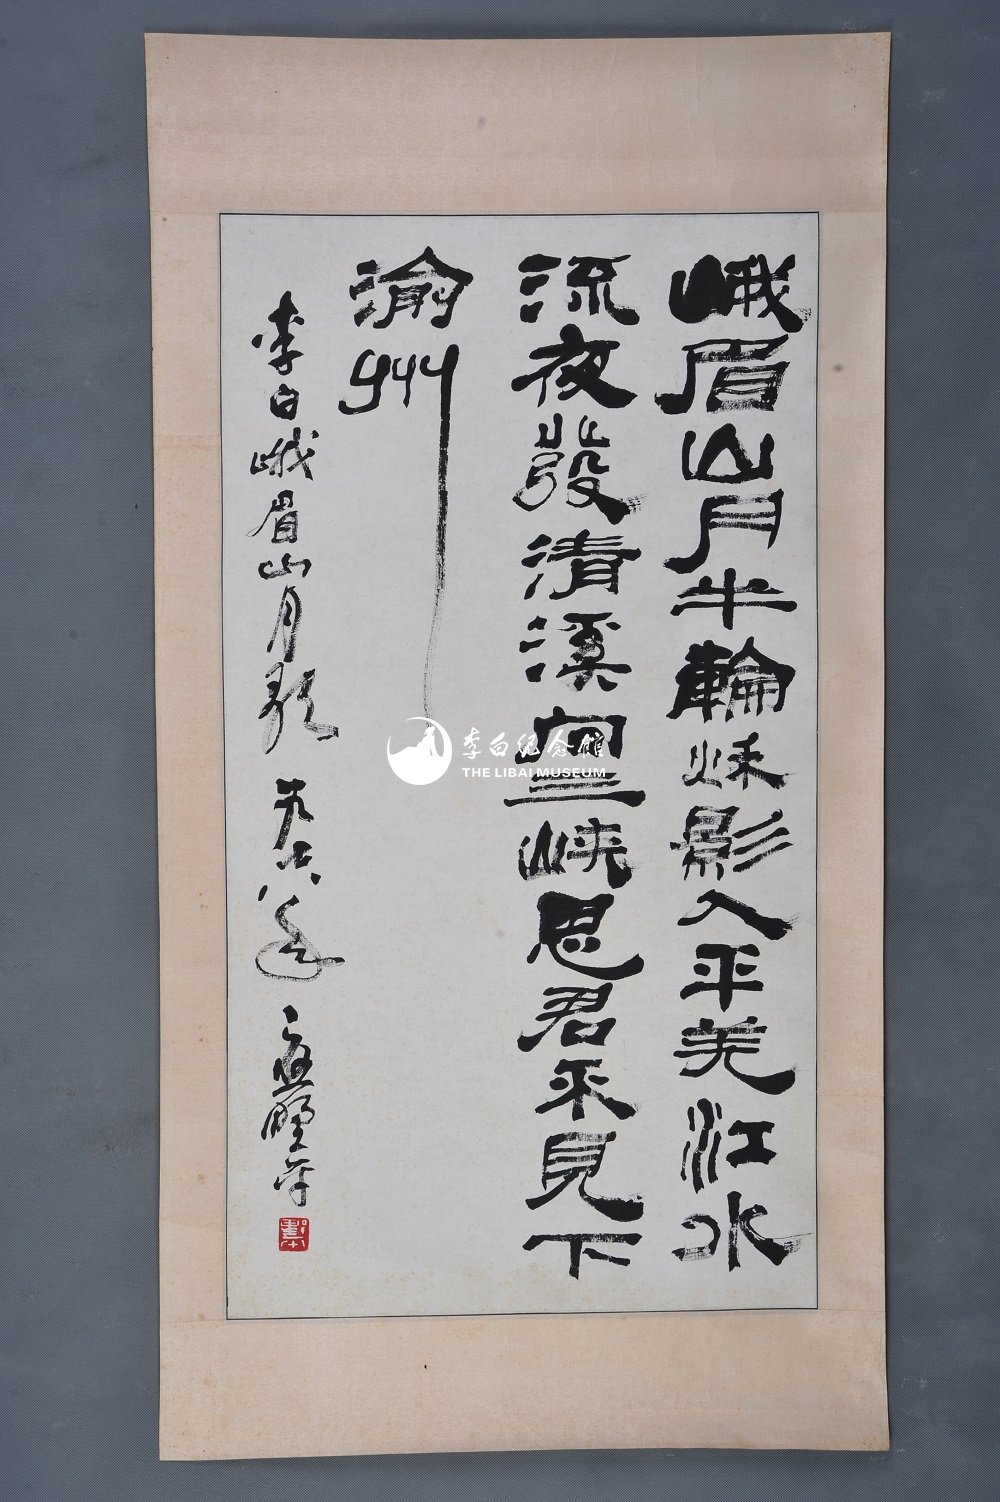 峨眉山月半輪秌影入平羌江水
流夜發清溪向三峽思君不見下
渝州
李白峨眉山月歌
李白纪念馆
THE LIBAI MUSEUM